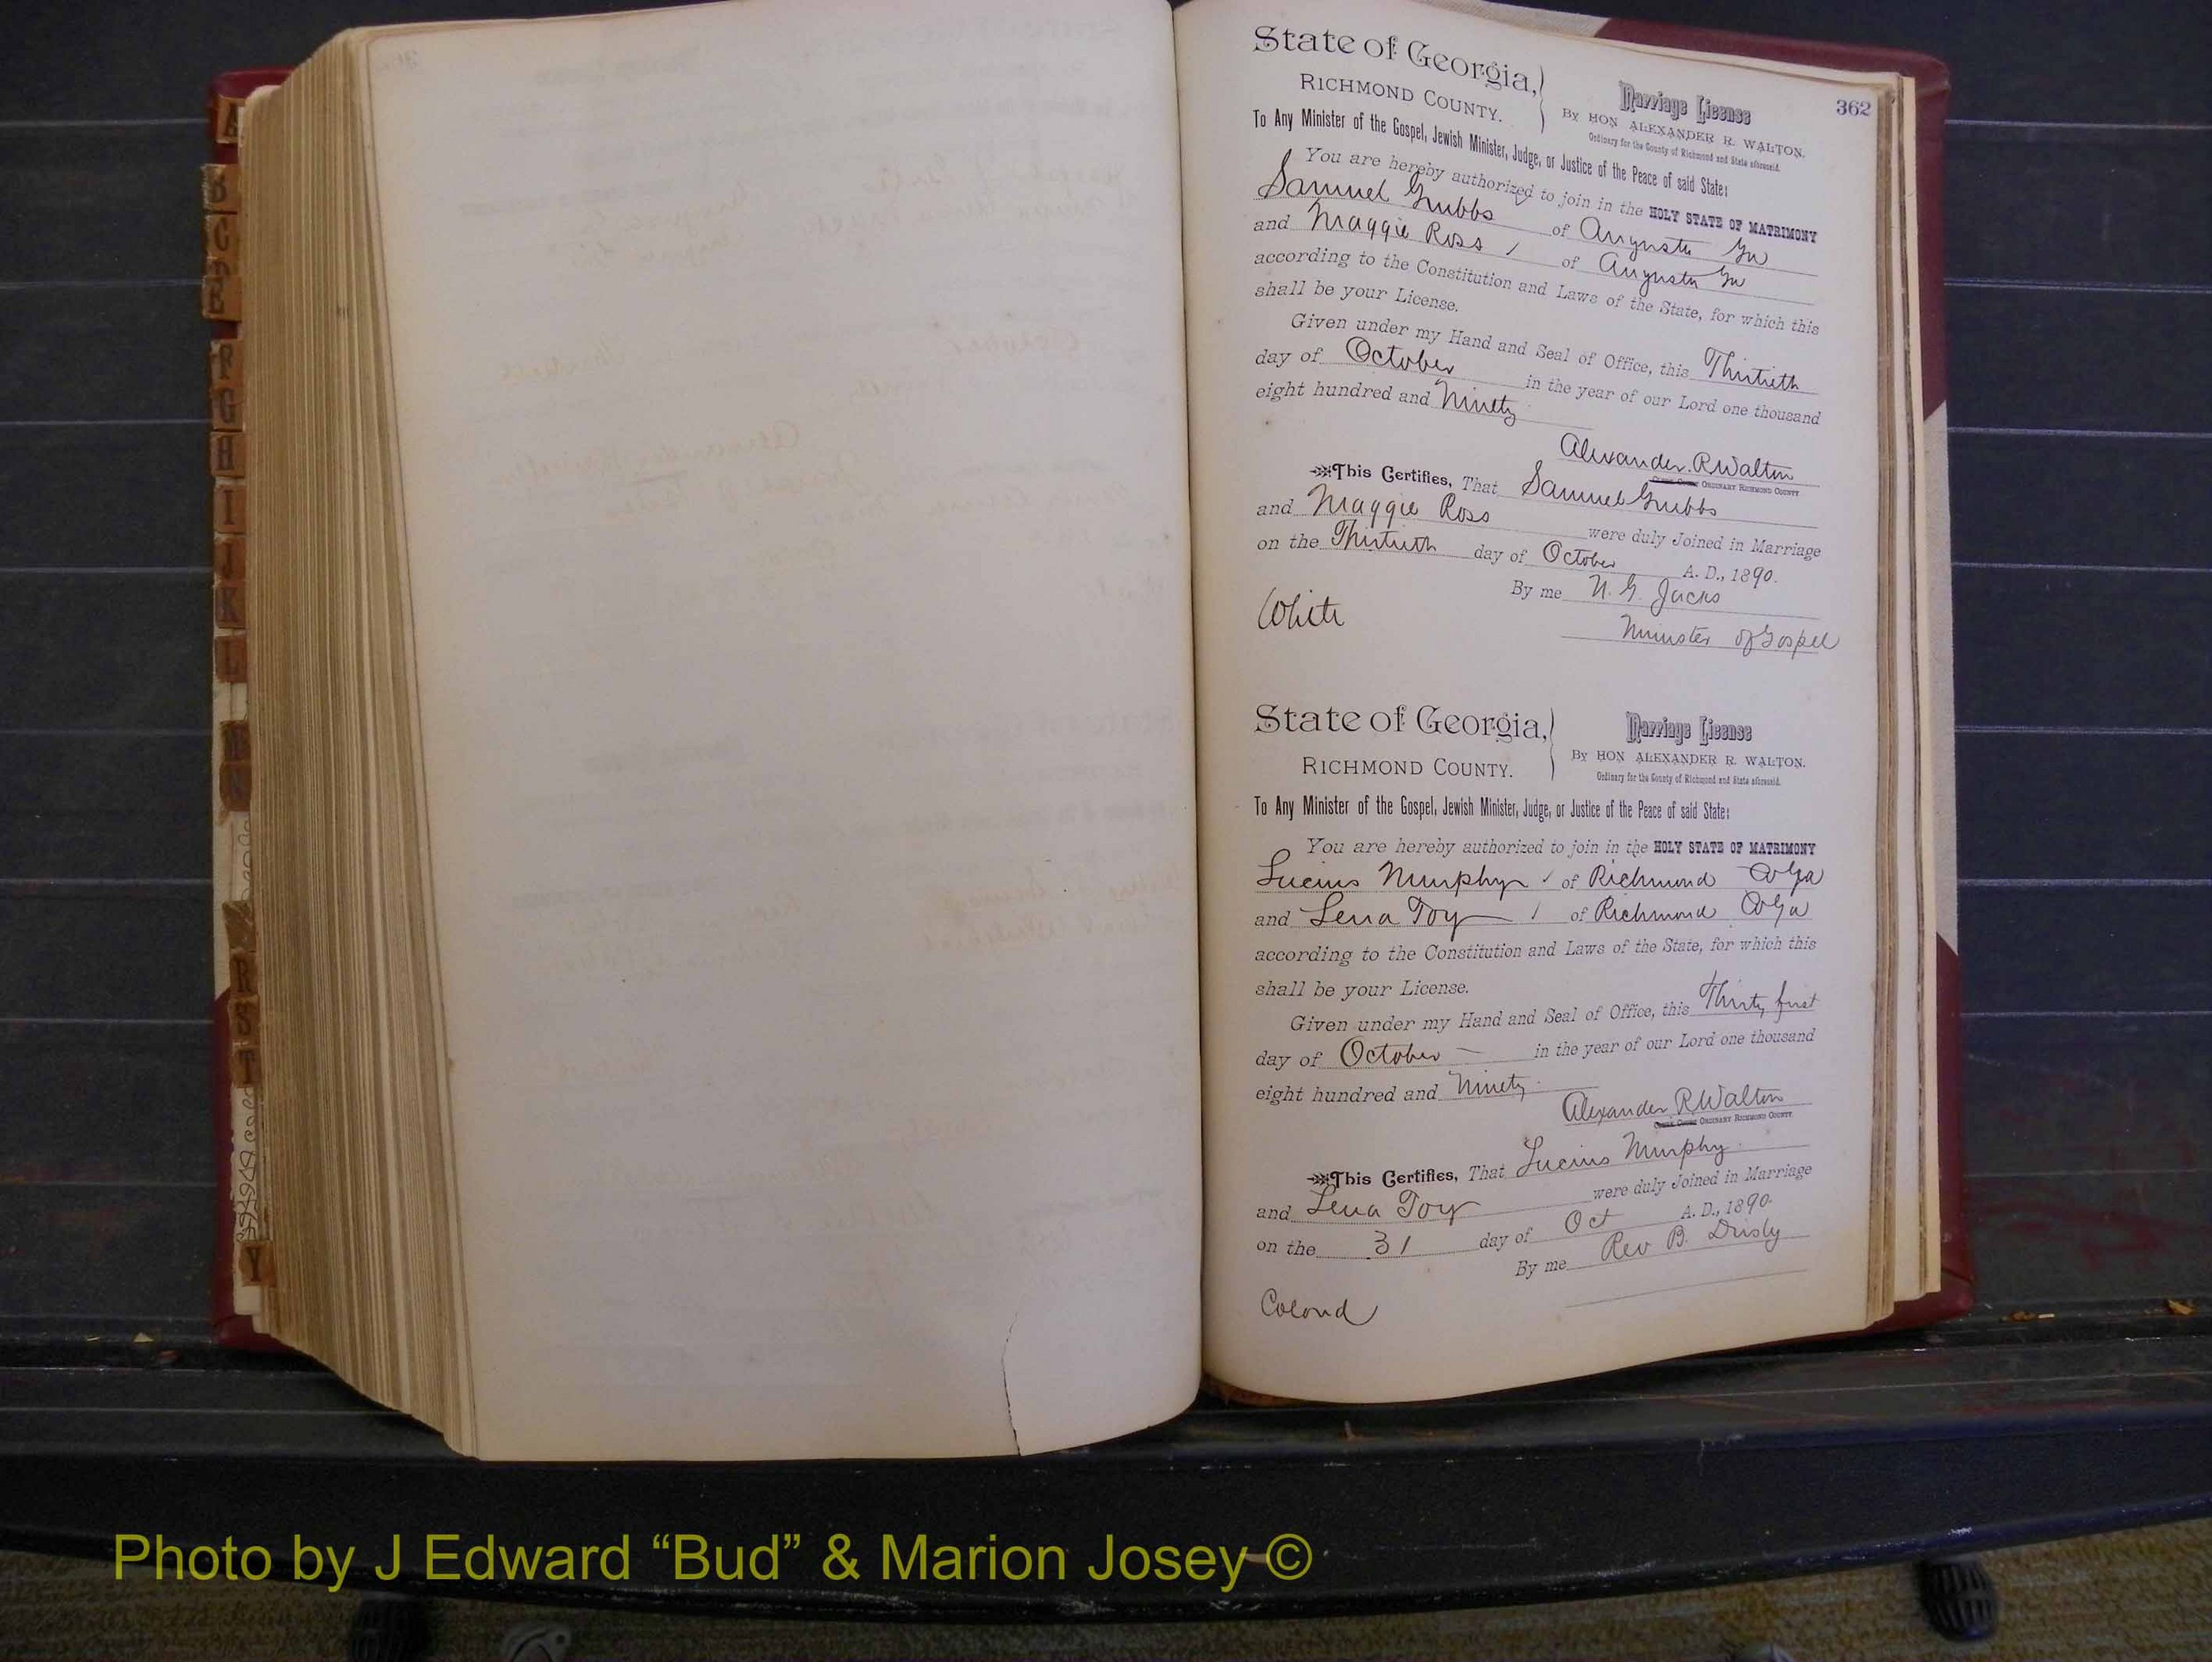 State of Georgia,
RICHMOND COUNTY.
Marriage License
BY HON. ALEXANDER R. WALTON.
Ordinary for the County of Richmond and State aforesaid.
362
To Any Minister of the Gospel, Jewish Minister, Judge, or Justice of the Peace of said State:
You are hereby authorized to join in the HOLY STATE OF MATRIMONY
Samuel Grubbs of Augusta Ga
and Maggie Ross of Augusta Ga
according to the Constitution and Laws of the State, for which this
shall be your License.
Given under my Hand and Seal of Office, this Thirtieth
day of October in the year of our Lord one thousand
eight hundred and Ninety
Alexander R Walton
ORDINARY RICHMOND COUNTY
This Certifies, That Samuel Grubbs
and Maggie Ross were duly Joined in Marriage
on the Thirtieth day of October A. D., 1890.
By me N. G. Jacks
Minister of Gospel
White
State of Georgia,
RICHMOND COUNTY.
Marriage License
BY HON. ALEXANDER R. WALTON.
Ordinary for the County of Richmond and State aforesaid.
To Any Minister of the Gospel, Jewish Minister, Judge, or Justice of the Peace of said State:
You are hereby authorized to join in the HOLY STATE OF MATRIMONY
Lucius Murphy of Richmond Co Ga
and Lena Toy of Richmond Co Ga
according to the Constitution and Laws of the State, for which this
shall be your License.
Given under my Hand and Seal of Office, this Thirty first
day of October in the year of our Lord one thousand
eight hundred and Ninety
Alexander R Walton
ORDINARY RICHMOND COUNTY.
This Certifies, That Lucius Murphy
and Lena Toy were duly Joined in Marriage
on the 31 day of Oct A. D., 1890.
By me Rev B.
Colord
A
B
C
D
E
F
G
H
I
J
K
L
R
S
T
Y
Photo by J Edward “Bud” & Marion Josey ©